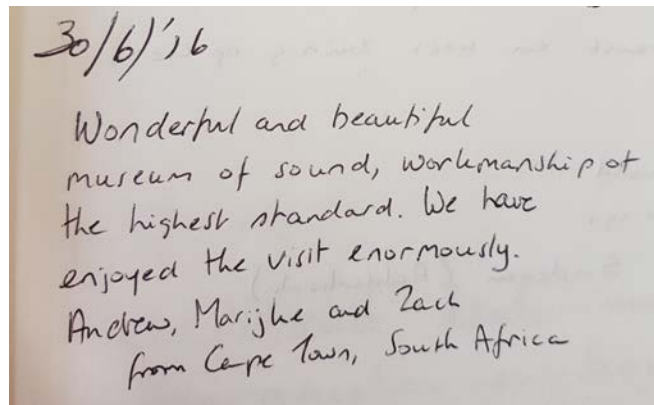 30/6/'16
Wonderful and beautiful
museum of sound, workmanship of
the highest standard. We have
enjoyed the visit enormously.
Andrew, Marijke and Zach
from Cape Town, South Africa